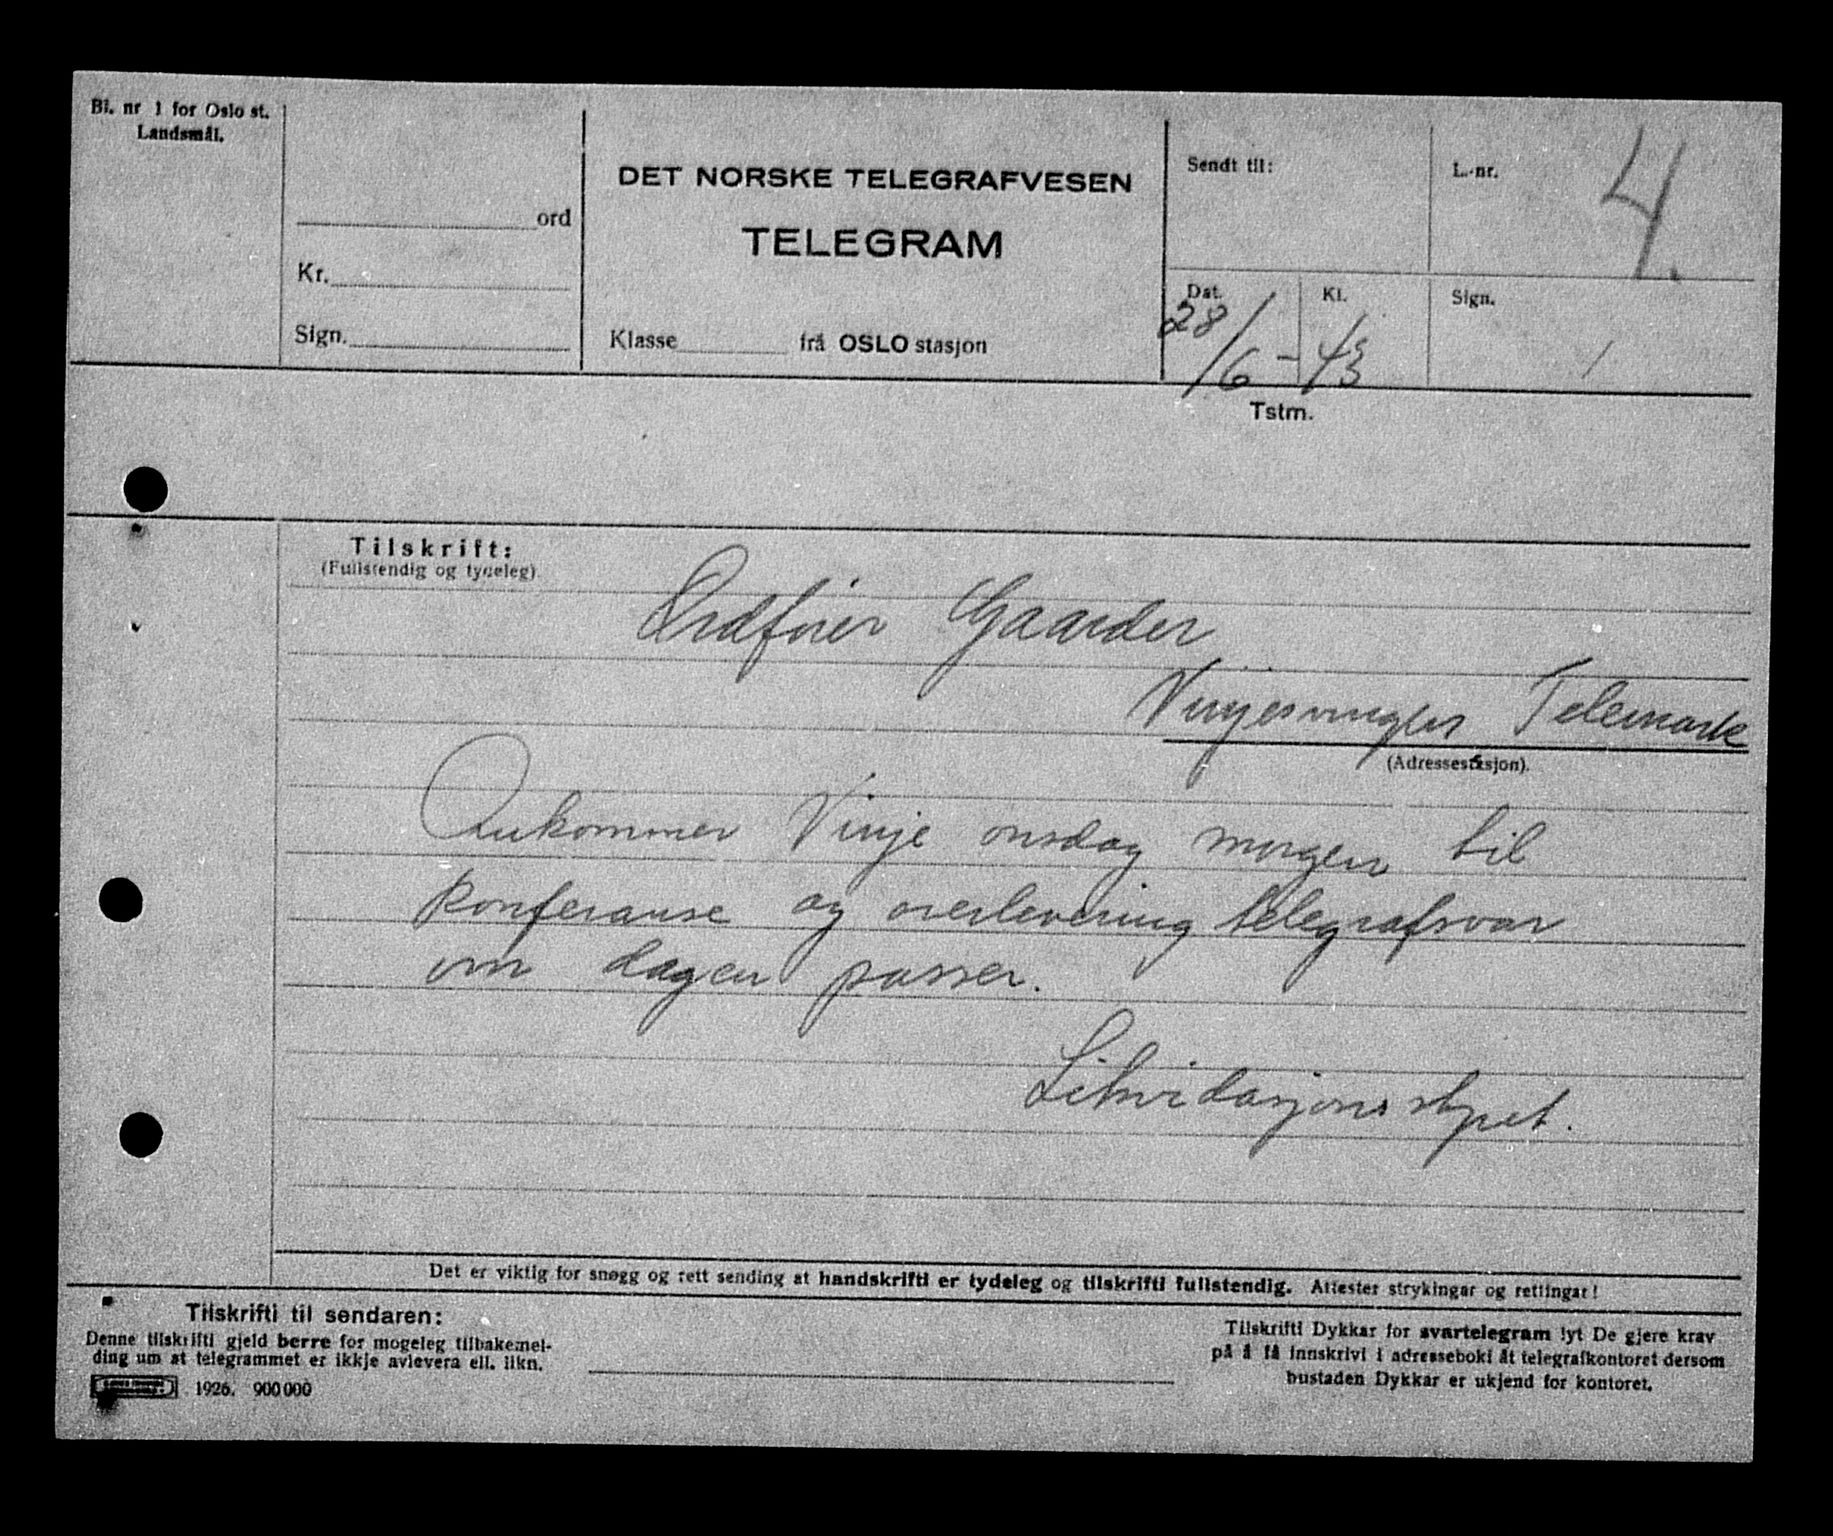 Bl. nr 1 for Oslo st.
Landsmål.
ord
Kr.
Sign.
DET NORSKE TELEGRAFVESEN
TELEGRAM
Klasse frå OSLO stasjon
Sendt til:
L.-nr. 4.
Dat. 28/6-43
Kl.
Sign.
Tstm.
Tilskrift:
(Fullstendig og tydeleg)
Ordfører Gaarder
Vinjesvingen Telemark
(Adressestasjon).
Ankommer Vinje onsdag morgen til
konferanse og overlevering telegrafsvar
om dagen passer.
Likvidasjonsstyret.
Det er viktig for snøgg og rett sending at handskrifti er tydeleg og tilskrifti fullstendig. Attester strykingar og rettingar!
Tilskrifti til sendaren:
Denne tilskrifti gjeld berre for mogeleg tilbakemel-
ding um at telegrammet er ikkje avlevera ell. likn.
1926. 900 000
Tilskrifti Dykkar for svartelegram lyt De gjere krav
på å få innskrivi i adresseboki åt telegrafkontoret dersom
bustaden Dykkar er ukjend for kontoret.